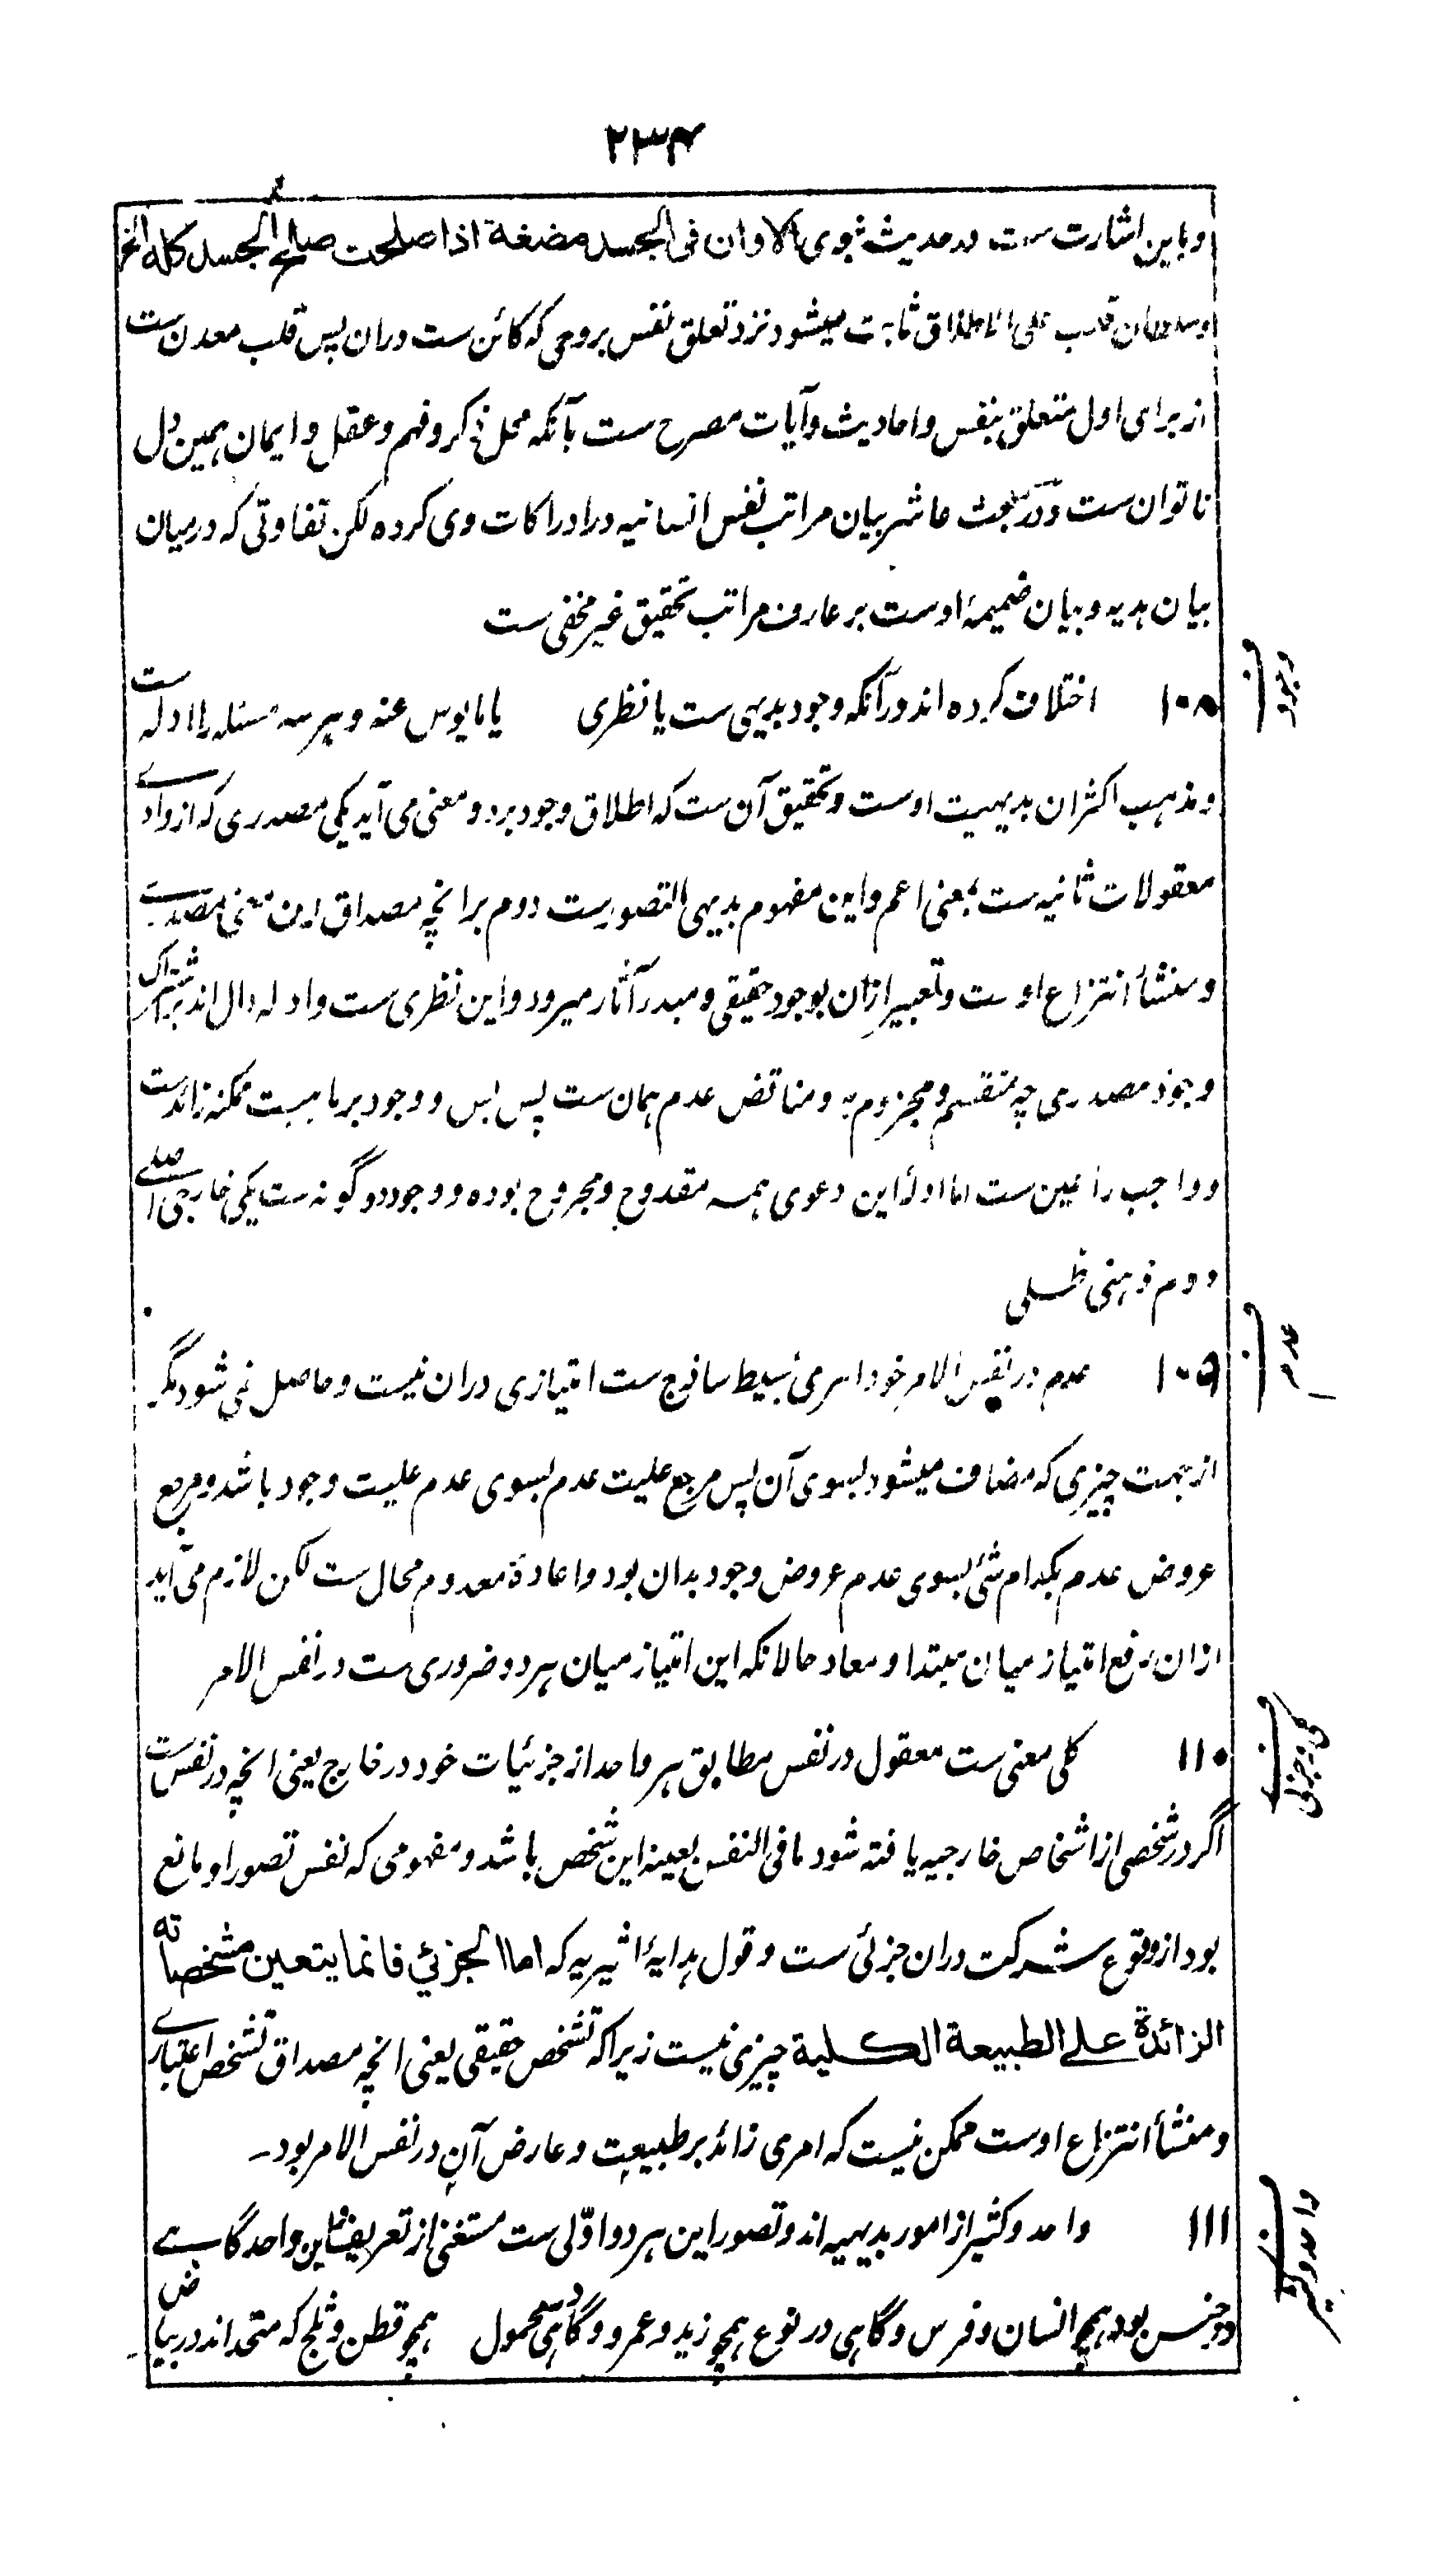 ۲۳۴
و باین اشارت ست در حدیث نبوی الا وان فی الجسد مضغة اذا صلحت صلح الجسد کله الخ
و سلطان قلب علی الاطلاق ثابت میشود نزد تعلق نفس بروحی که کائن ست دران پس قلب معدن ست
از برای اول متعلق بنفس و احادیث و آیات مصرح ست بآنکه محل ذکر و فهم و عقل و ایمان همین دل
ناتوان ست و در مبحث عاشر بیان مراتب نفس انسانیه در ادراکات وی کرده لکن تفاوتی که درمیان
بیان هدیه و بیان ضمیمۀ اوست بر عارف مراتب تحقیق غیر مخفی ست
وجود
۱۰۸ اختلاف کرده اند در آنکه وجود بدیهی ست یا نظری یا مایوس عنه و هر سه مسئله را ادله ست
و مذهب اکثران بدیهیت اوست و تحقیق آن ست که اطلاق وجود بر دو معنی می آید یکی مصدری که از وادے
معقولات ثانیه ست بمعنی اعم و این مفهوم بدیهی التصورست دوم بر انچه مصداق این معنی مصدرے
و منشأ انتزاع اوست و تعبیر ازان بوجود حقیقی و مبدر آثار میرود و این نظری ست و ادله دال اند بر اشتراک
وجود مصدری چه منقسم و مجزوم به و مناقض عدم همان ست پس بس و وجود بر ماهیت ممکنه زائدست
و واجب را عین ست اما ادلۀ این دعوی همه مقدوح و مجروح بوده و وجود دو گونه ست یکی خارجی اصلے
دوم ذهنی ظلی
عدم
۱۰۹ عدم در نفس الامر خود امری بسیط ساذج ست امتیازی دران نیست و حاصل نمی شود مگر
از جهت چیزی که مضاف میشود بسوی آن پس مرجع علیت عدم بسوی عدم علیت وجود باشد و مرجع
عروض عدم بکدام شئ بسوی عدم عروض وجود بدان بود و اعادۀ معدوم محال ست لکن لازم می آید
ازان رفع امتیاز میان مبتدا و معاد حالانکه این امتیاز میان هر دو ضروری ست در نفس الامر
کلی و جزئی
۱۱۰ کلی معنی ست معقول در نفس مطابق هر واحد از جزئیات خود در خارج یعنی انچه در نفس ست
اگر در شخصی از اشخاص خارجیه یافته شود ما فی النفس بعینه این شخص باشد و مفهومی که نفس تصور او مانع
بود از وقوع شرکت دران جزئی ست و قول هدایۀ اثیریه که اما الجزئي فانما يتعين مشخصاته
الزائدة علے الطبيعة الكلية چیزی نیست زیراکه تشخص حقیقی یعنی انچه مصداق تشخص اعتبارے
و منشأ انتزاع اوست ممکن نیست که امری زائد بر طبیعت و عارض آن در نفس الامر بود ـ
واحد و کثیر
۱۱۱ واحد و کثیر از امور بدیهیه اند و تصور این هر دو اوّلی ست مستغنی از تعریف ست این واحد گاہے
در جنس بود همچو انسان و فرس و گاهی در نوع همچو زید و عمرو و گاهی در محمول همچو قطن و ثلج که متحد اند در بیاض